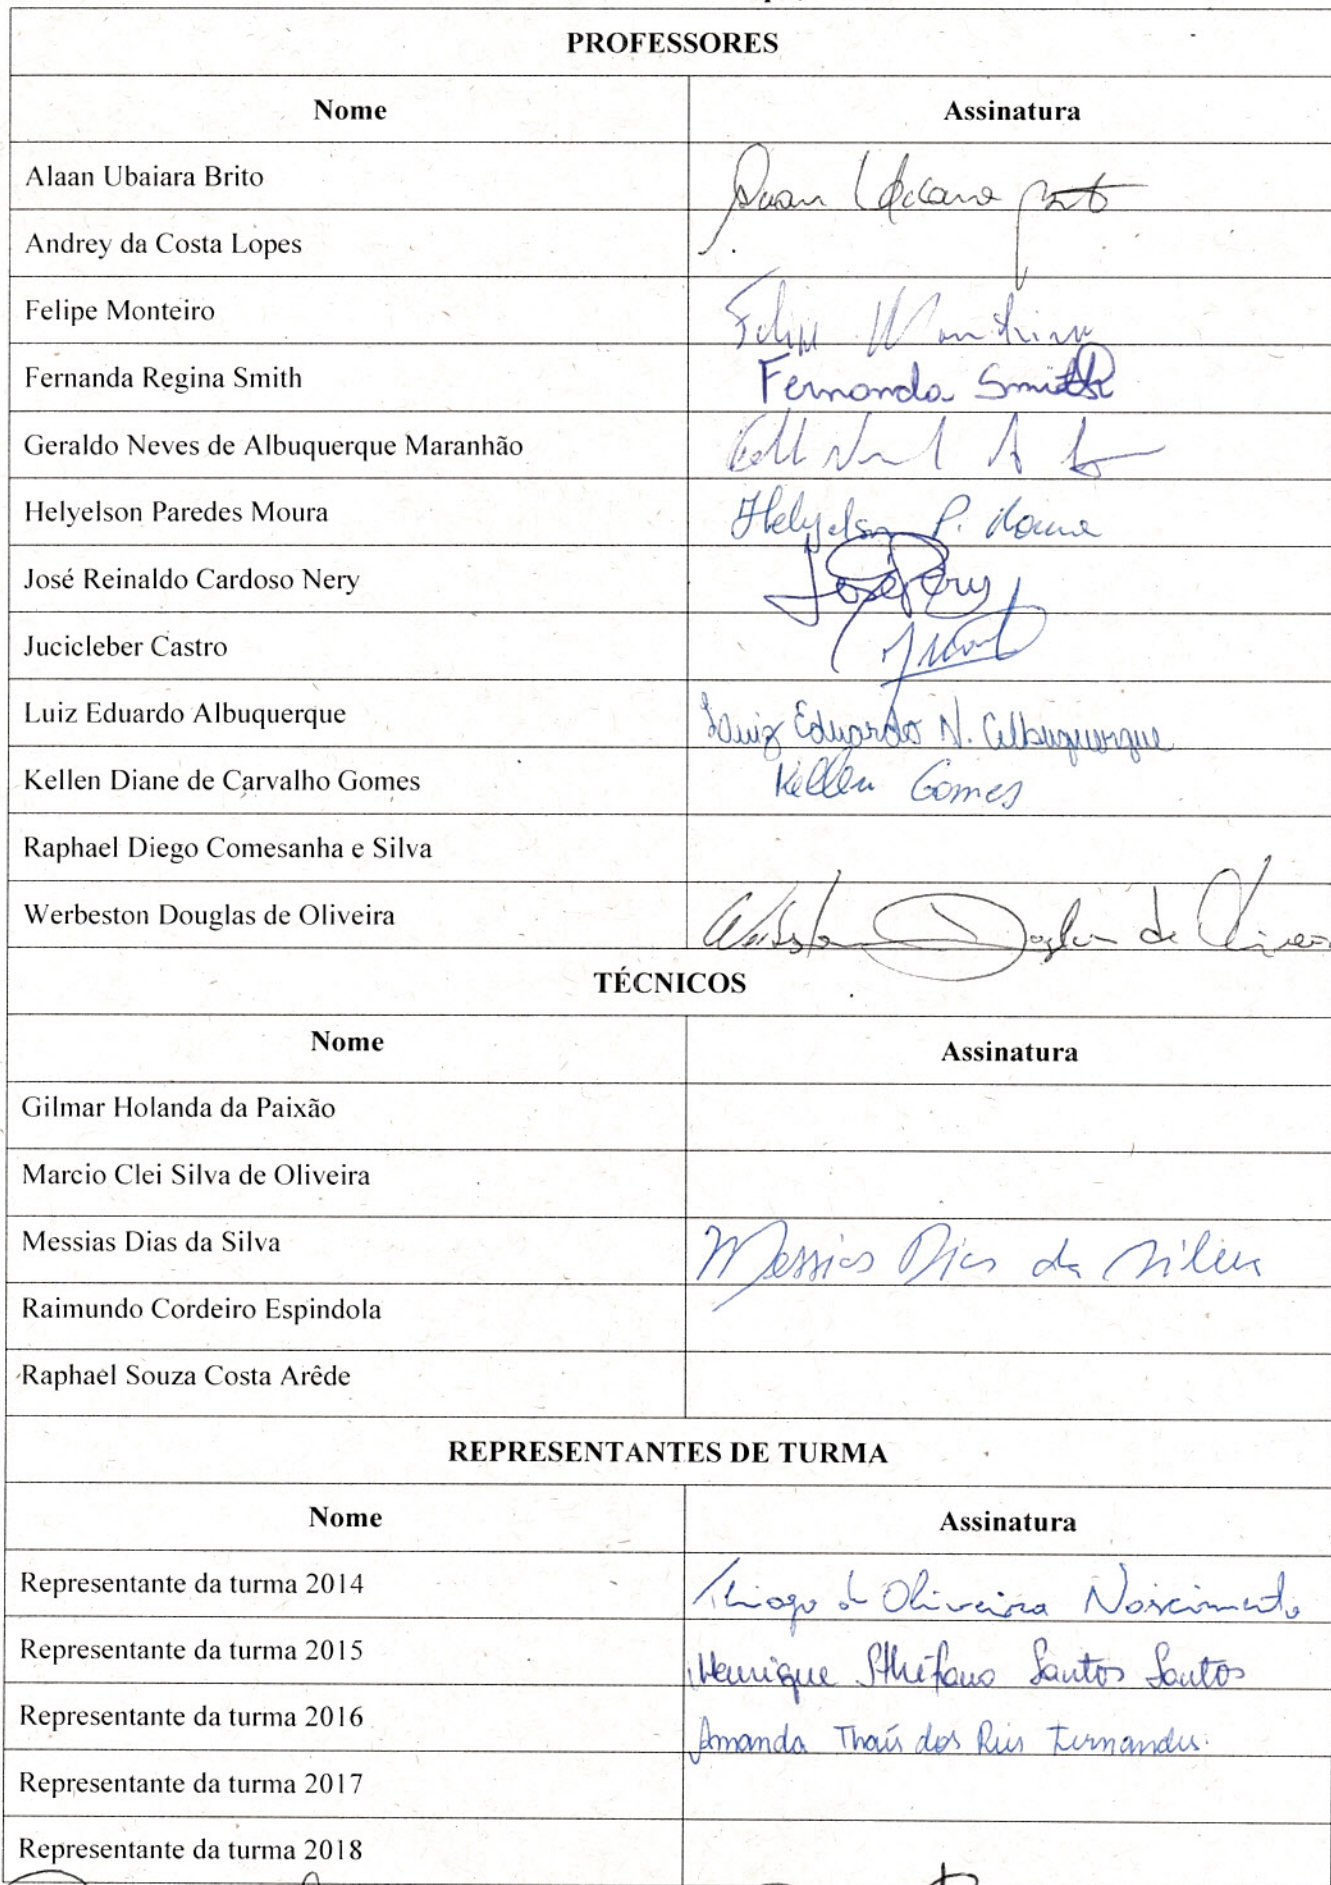 PROFESSORES
Nome Assinatura
Alaan Ubaiara Brito
Andrey da Costa Lopes
Felipe Monteiro Felipe Monteiro
Fernanda Regina Smith Fernanda Smith
Geraldo Neves de Albuquerque Maranhão
Helyelson Paredes Moura Helyelson P. Moura
José Reinaldo Cardoso Nery José Nery
Jucicleber Castro
Luiz Eduardo Albuquerque Luiz Eduardo N. Albuquerque
Kellen Diane de Carvalho Gomes Kellen Gomes
Raphael Diego Comesanha e Silva
Werbeston Douglas de Oliveira Werbeston Douglas de Oliveira
TÉCNICOS
Nome Assinatura
Gilmar Holanda da Paixão
Marcio Clei Silva de Oliveira
Messias Dias da Silva Messias Dias da Silva
Raimundo Cordeiro Espindola
Raphael Souza Costa Arêde
REPRESENTANTES DE TURMA
Nome Assinatura
Representante da turma 2014 Thiago de Oliveira Nascimento
Representante da turma 2015 Henrique Sthéfano Santos Santos
Representante da turma 2016 Amanda Thaís dos Reis Fernandes.
Representante da turma 2017
Representante da turma 2018